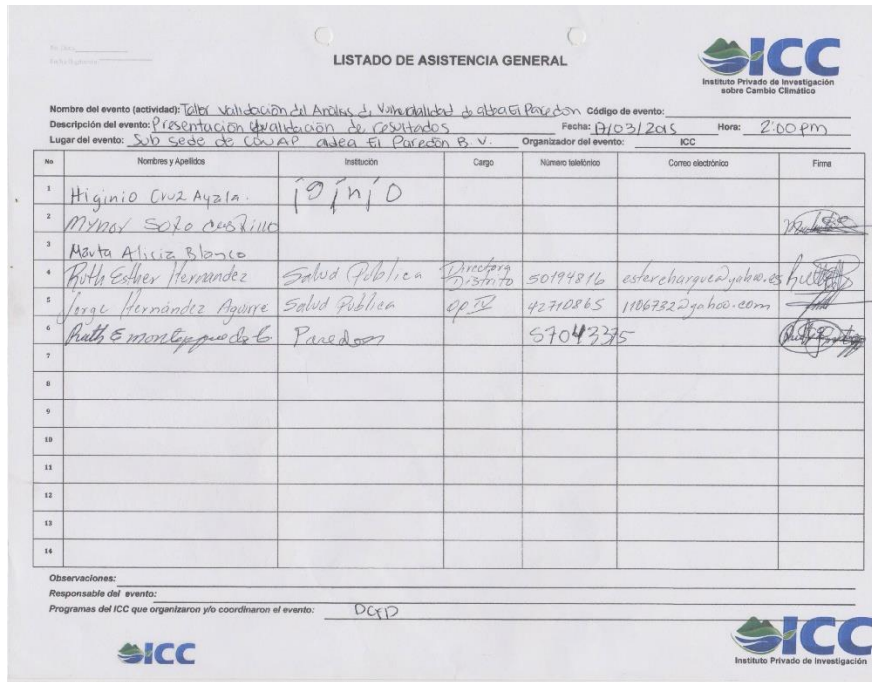 LISTADO DE ASISTENCIA GENERAL
ICC
Instituto Privado de Investigación
sobre Cambio Climático
Nombre del evento (actividad): Taller Validación del Análisis de Vulnerabilidad de aldea El Paredon Código de evento:
Descripción del evento: Presentación validación de resultados Fecha: 17/03/2015 Hora: 2:00 pm
Lugar del evento: Sub sede de CONAP aldea El Paredón B. V. Organizador del evento: ICC
No Nombres y Apellidos Institución Cargo Número telefónico Correo electrónico Firma
1 Higinio Cruz Ayala. iginio
2 Mynor Soto Castillo
3 Marta Alicia Blanco
4 Ruth Esther Hernandez Salud Publica Directora Distrito 50194816
5 Jorge Hernández Aguirre Salud Publica Op IV 42710865 1106732@yahoo.com
6 Ruth E Paredon 57043375
7
8
9
10
11
12
13
14
Observaciones:
Responsable del evento:
Programas del ICC que organizaron y/o coordinaron el evento:
ICC
ICC
Instituto Privado de Investigación